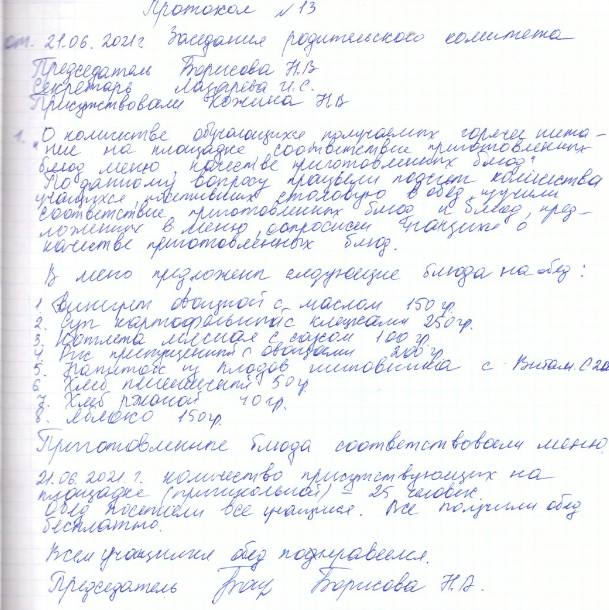 Протокол №13
от. 21.06.2021г Заседания родительского комитета
Председатель Борисова Н.В
Секретарь Лазарева И.С.
Присутствовали Кожина Н.В
1. "О количестве обучающихся получаемых горячее пита-
ние на площадке, соответствие приготовленных
блюд меню, качестве приготовленных блюд"
По данному вопросу произвели подсчет количества
учащихся, посетивших столовую в обед, изучили
соответствие приготовленных блюд и блюд, пред-
ложенных в меню, опросили учащихся о
качестве приготовленных блюд.
В меню предложены следующие блюда на обед:
1. Винегрет овощной с маслом 150 гр.
2. Суп картофельный с клецками 250 гр.
3. Котлета мясная с соусом 100 гр.
4. Рис припущенный с овощами 200 гр.
5. Напиток из плодов шиповника с Витам. С 200
6. Хлеб пшеничный 50 гр
7. Хлеб ржаной 40 гр.
8. Яблоко 150 гр.
Приготовленные блюда соответствовали меню.
21.06.2021.г. количество присутствующих на
площадке (пришкольной) = 25 человек.
Обед посетили все учащиеся. Все получили обед
бесплатно.
Всем учащимся обед понравился.
Председатель Борисова Н.В.